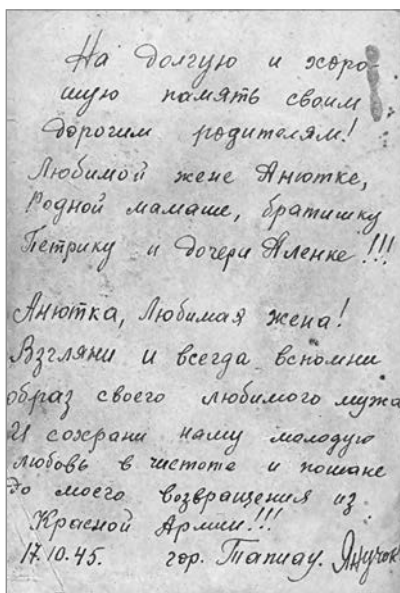 На долгую и хоро-
шую память своим
дорогим родителям!
Любимой жене Анютке,
Родной мамаше, братишку
Петрику и дочери Аленке!!!
Анютка, Любимая жена!
Взгляни и всегда вспомни
образ своего любимого мужа
И сохрани нашу молодую
любовь в чистоте и пошане
До моего возвращения из
Красной Армии!!!
17.10.45. гор. Тапиау. Янучок